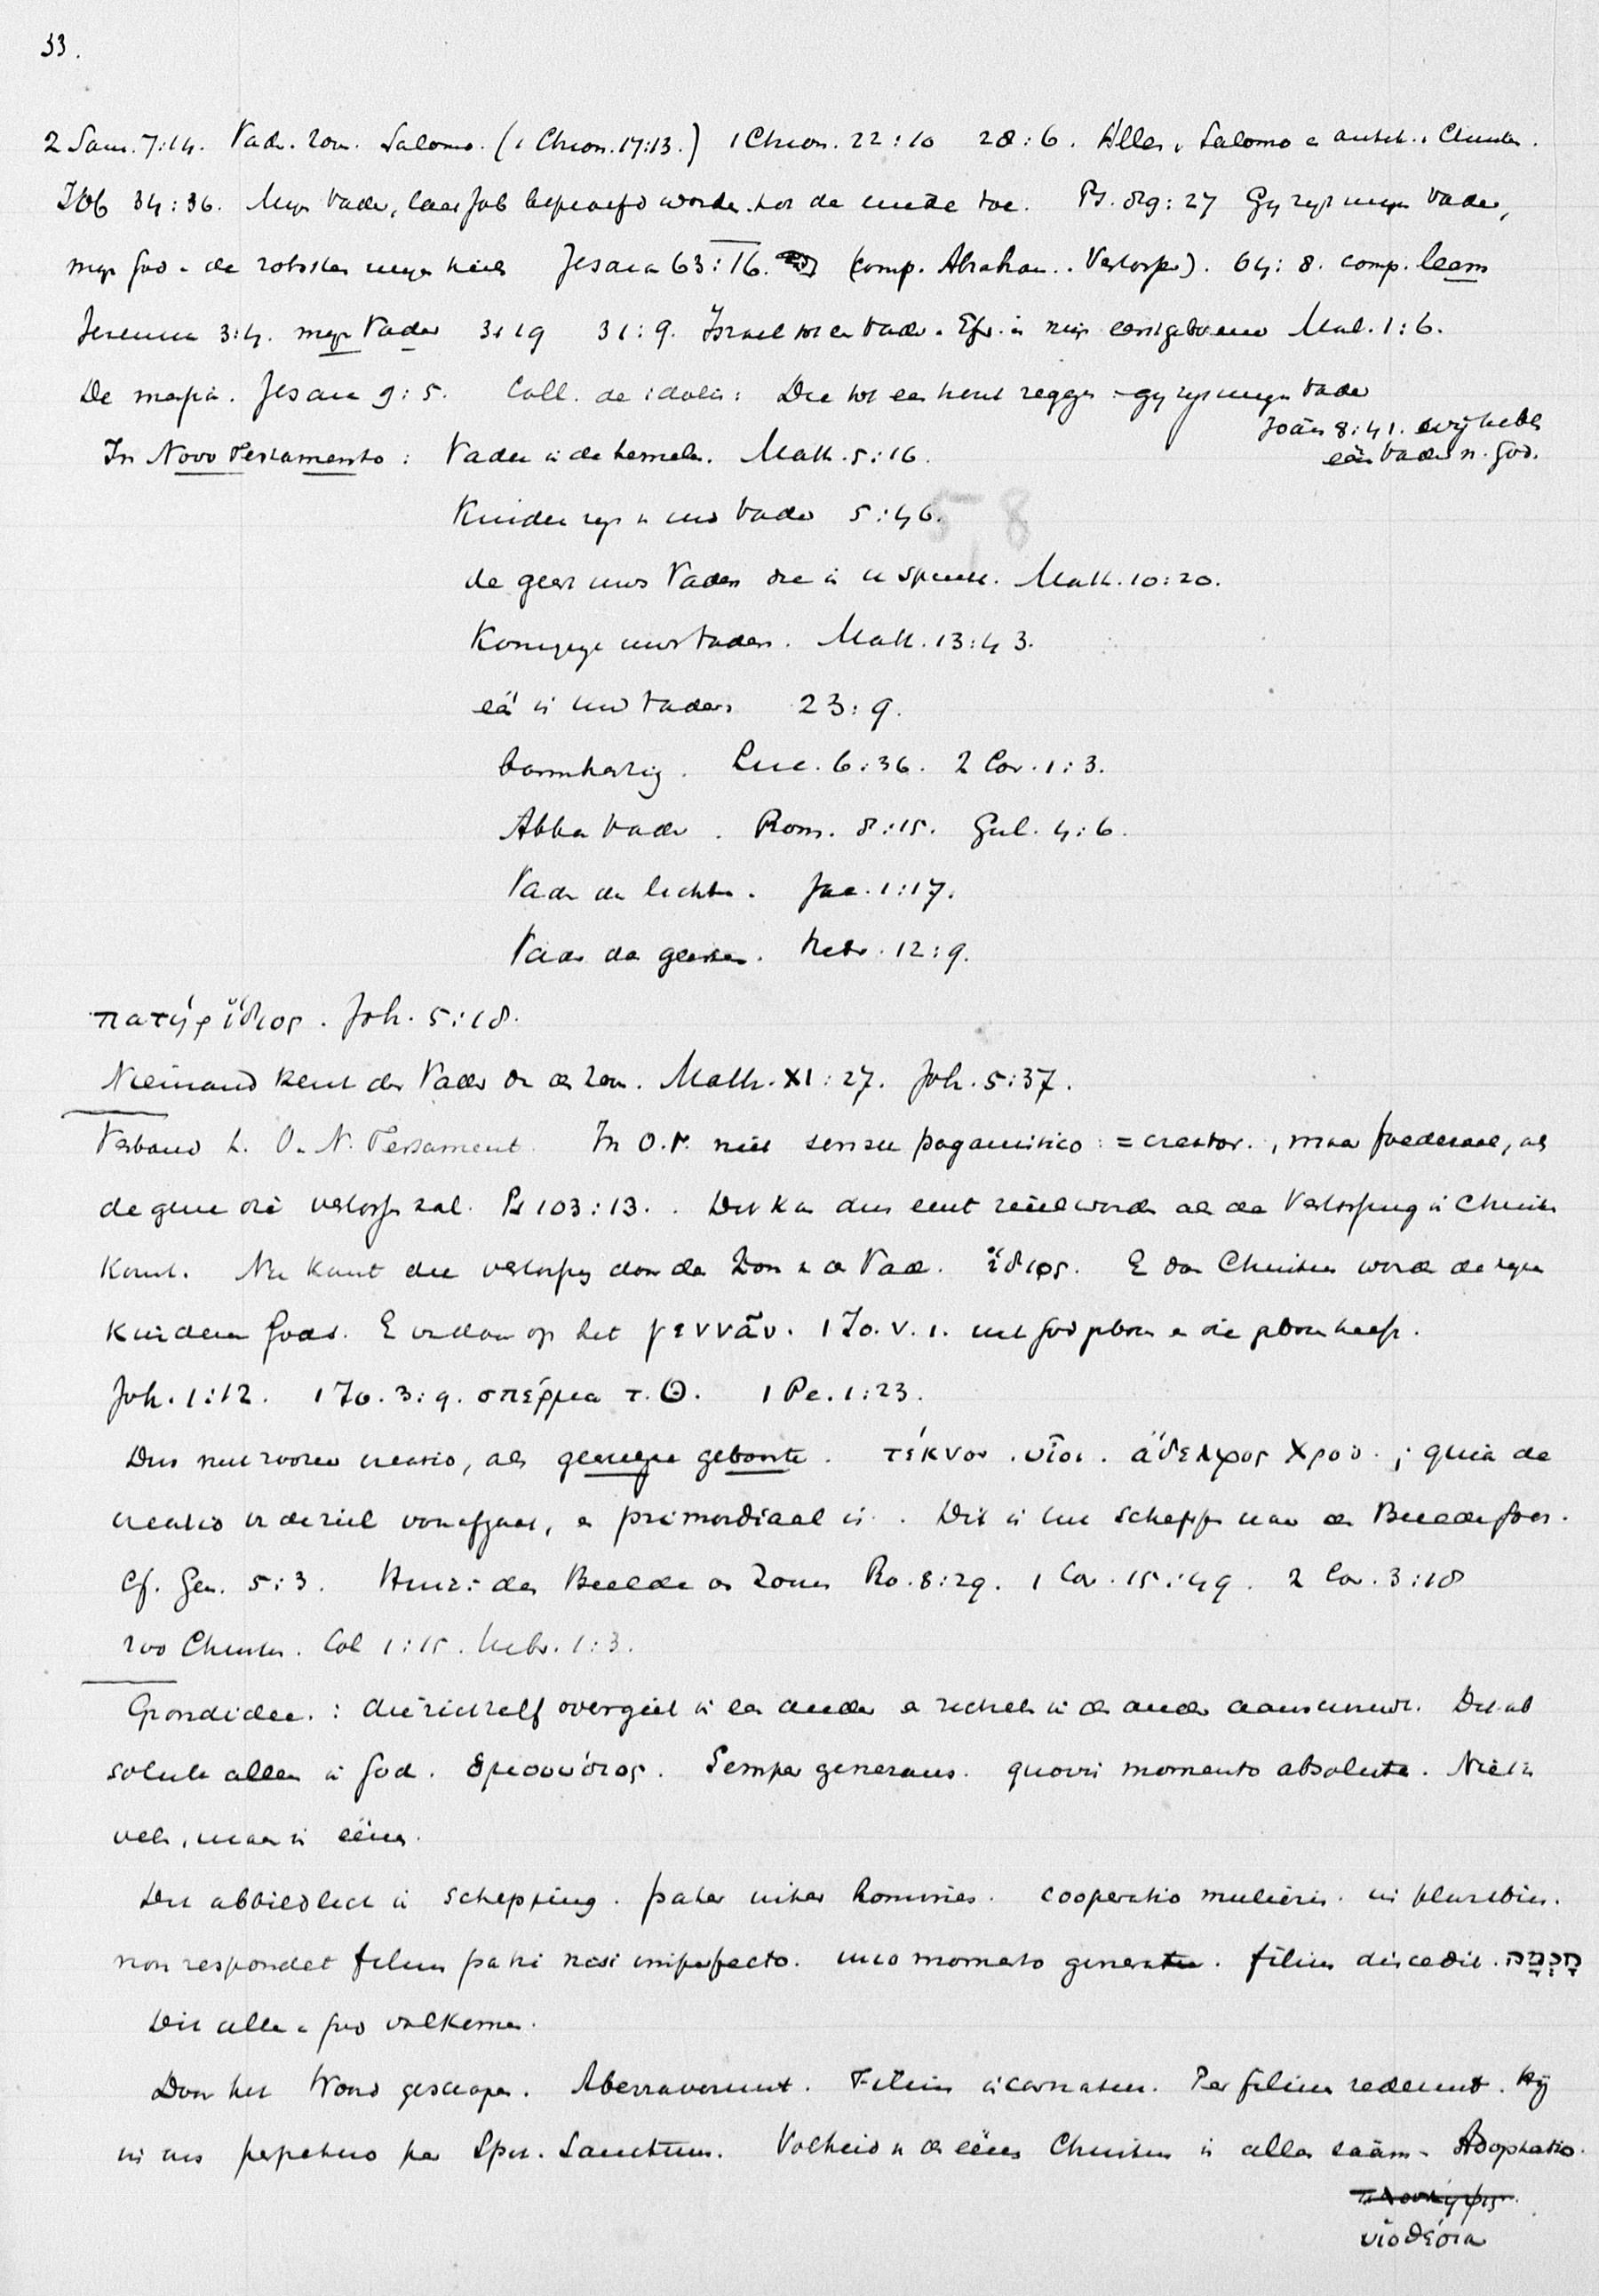 33.
2 Sam. 7:14. Vad. Zon. Salomo. (1 Chron. 17:13.) 1 Chron. 22:10 28:6. Alles Salomo
Job 34:36. Mijn Vader, laat Job beproefd worden tot de einde toe. Ps. 89:27 Gij zijt mijn Vader,
mijn God de rotsteen mijns heils Jesaia 63:16. (comp. Abraham.. Verlosser). 64:8. comp. leem
Jeremia 3:4. mijn Vader 3:19 31:9. Israel tot een Vader. Efr. is mijn eerstgeborene Mal. 1:6.
De messia. Jesaia 9:5. Coll. de idolis: Die tot een hout zeggen gij zijt mijn Vader
Joan 8:41. wij hebben
één Vader n. God.
In Novo Testamento: Vader in de hemelen. Matt. 5:16.
Kinderen zijn v uw Vader 5:46.
58
de geest uws Vaders die in u spreekt. Matth. 10:20.
Koningrijk uws Vaders. Matt. 13:43.
één is uw Vader 23:9.
barmhartig. Luc. 6:36. 2 Cor. 1:3.
Abba Vader. Rom. 8:15. Gal. 4:6.
Vader der lichten. Jac. 1:17.
Vader der geesten. Hebr. 12:9.
πατήρ ἴδιος. Joh. 5:18.
Niemand kent den Vader dan de Zoon. Matth. XI:27. Joh. 5:37.
Verband t. O. N. Testament. In O.T. niet sensu paganistico: = creator., maar foederaal, als
degene die verlossen zal. Ps 103:13. Dit kan dus eerst reëel worden als de Verlossing in Christus
komt. Nu komt die verlossing door den Zoon v d Vad. ἴδιος. E door Christus worden de zijnen
kinderen Gods. E dan op het γεννᾶν. 1 Jo. V. 1. uit God geboren e die geboren heeft.
Joh. 1:12. 1 Jo. 3:9. σπέρμα τ. Θ. 1 Pe. 1:23.
Dus niet zoozeer creatio, als generatie geboorte. τέκνον. υἱοι. ἄδελφος Χρου.; quia de
creatio er de ziel vooraf gaat, e primordiaal is. Dit is het scheppen naar den Beelde Gods.
Cf. Gen. 5:3. Hunz: den Beelde des Zoons Ro. 8:29. 1 Cor. 15:49. 2 Cor. 3:18
zoo Christus. Col 1:15. Hebr. 1:3.
Grondidee.: die zichzelf overgiet in een ander e zichzelf in de ander aanschouwt. Dit ab
solute alleen in God. ὁμοούσιος. Semper generans. quovis momento absolute. Niet in
velen, maar in éénen.
Dit afbeeldlich in schepping. pater inter homines. cooperatio mulieris. in pluribus.
non respondet filius patri nisi imperfecto. uno momento generatur. filius discedit. חָכְמָה
Dit alles in God volkomen.
Door het Woord geschapen. Aberraverunt. Filius incarnatus. Per filium redeunt. Hij
in ons perpetuo per Spir. Sanctum. Volheid v d éénen Christus in allen saâm. Adoptatio.
υἱοθέσια